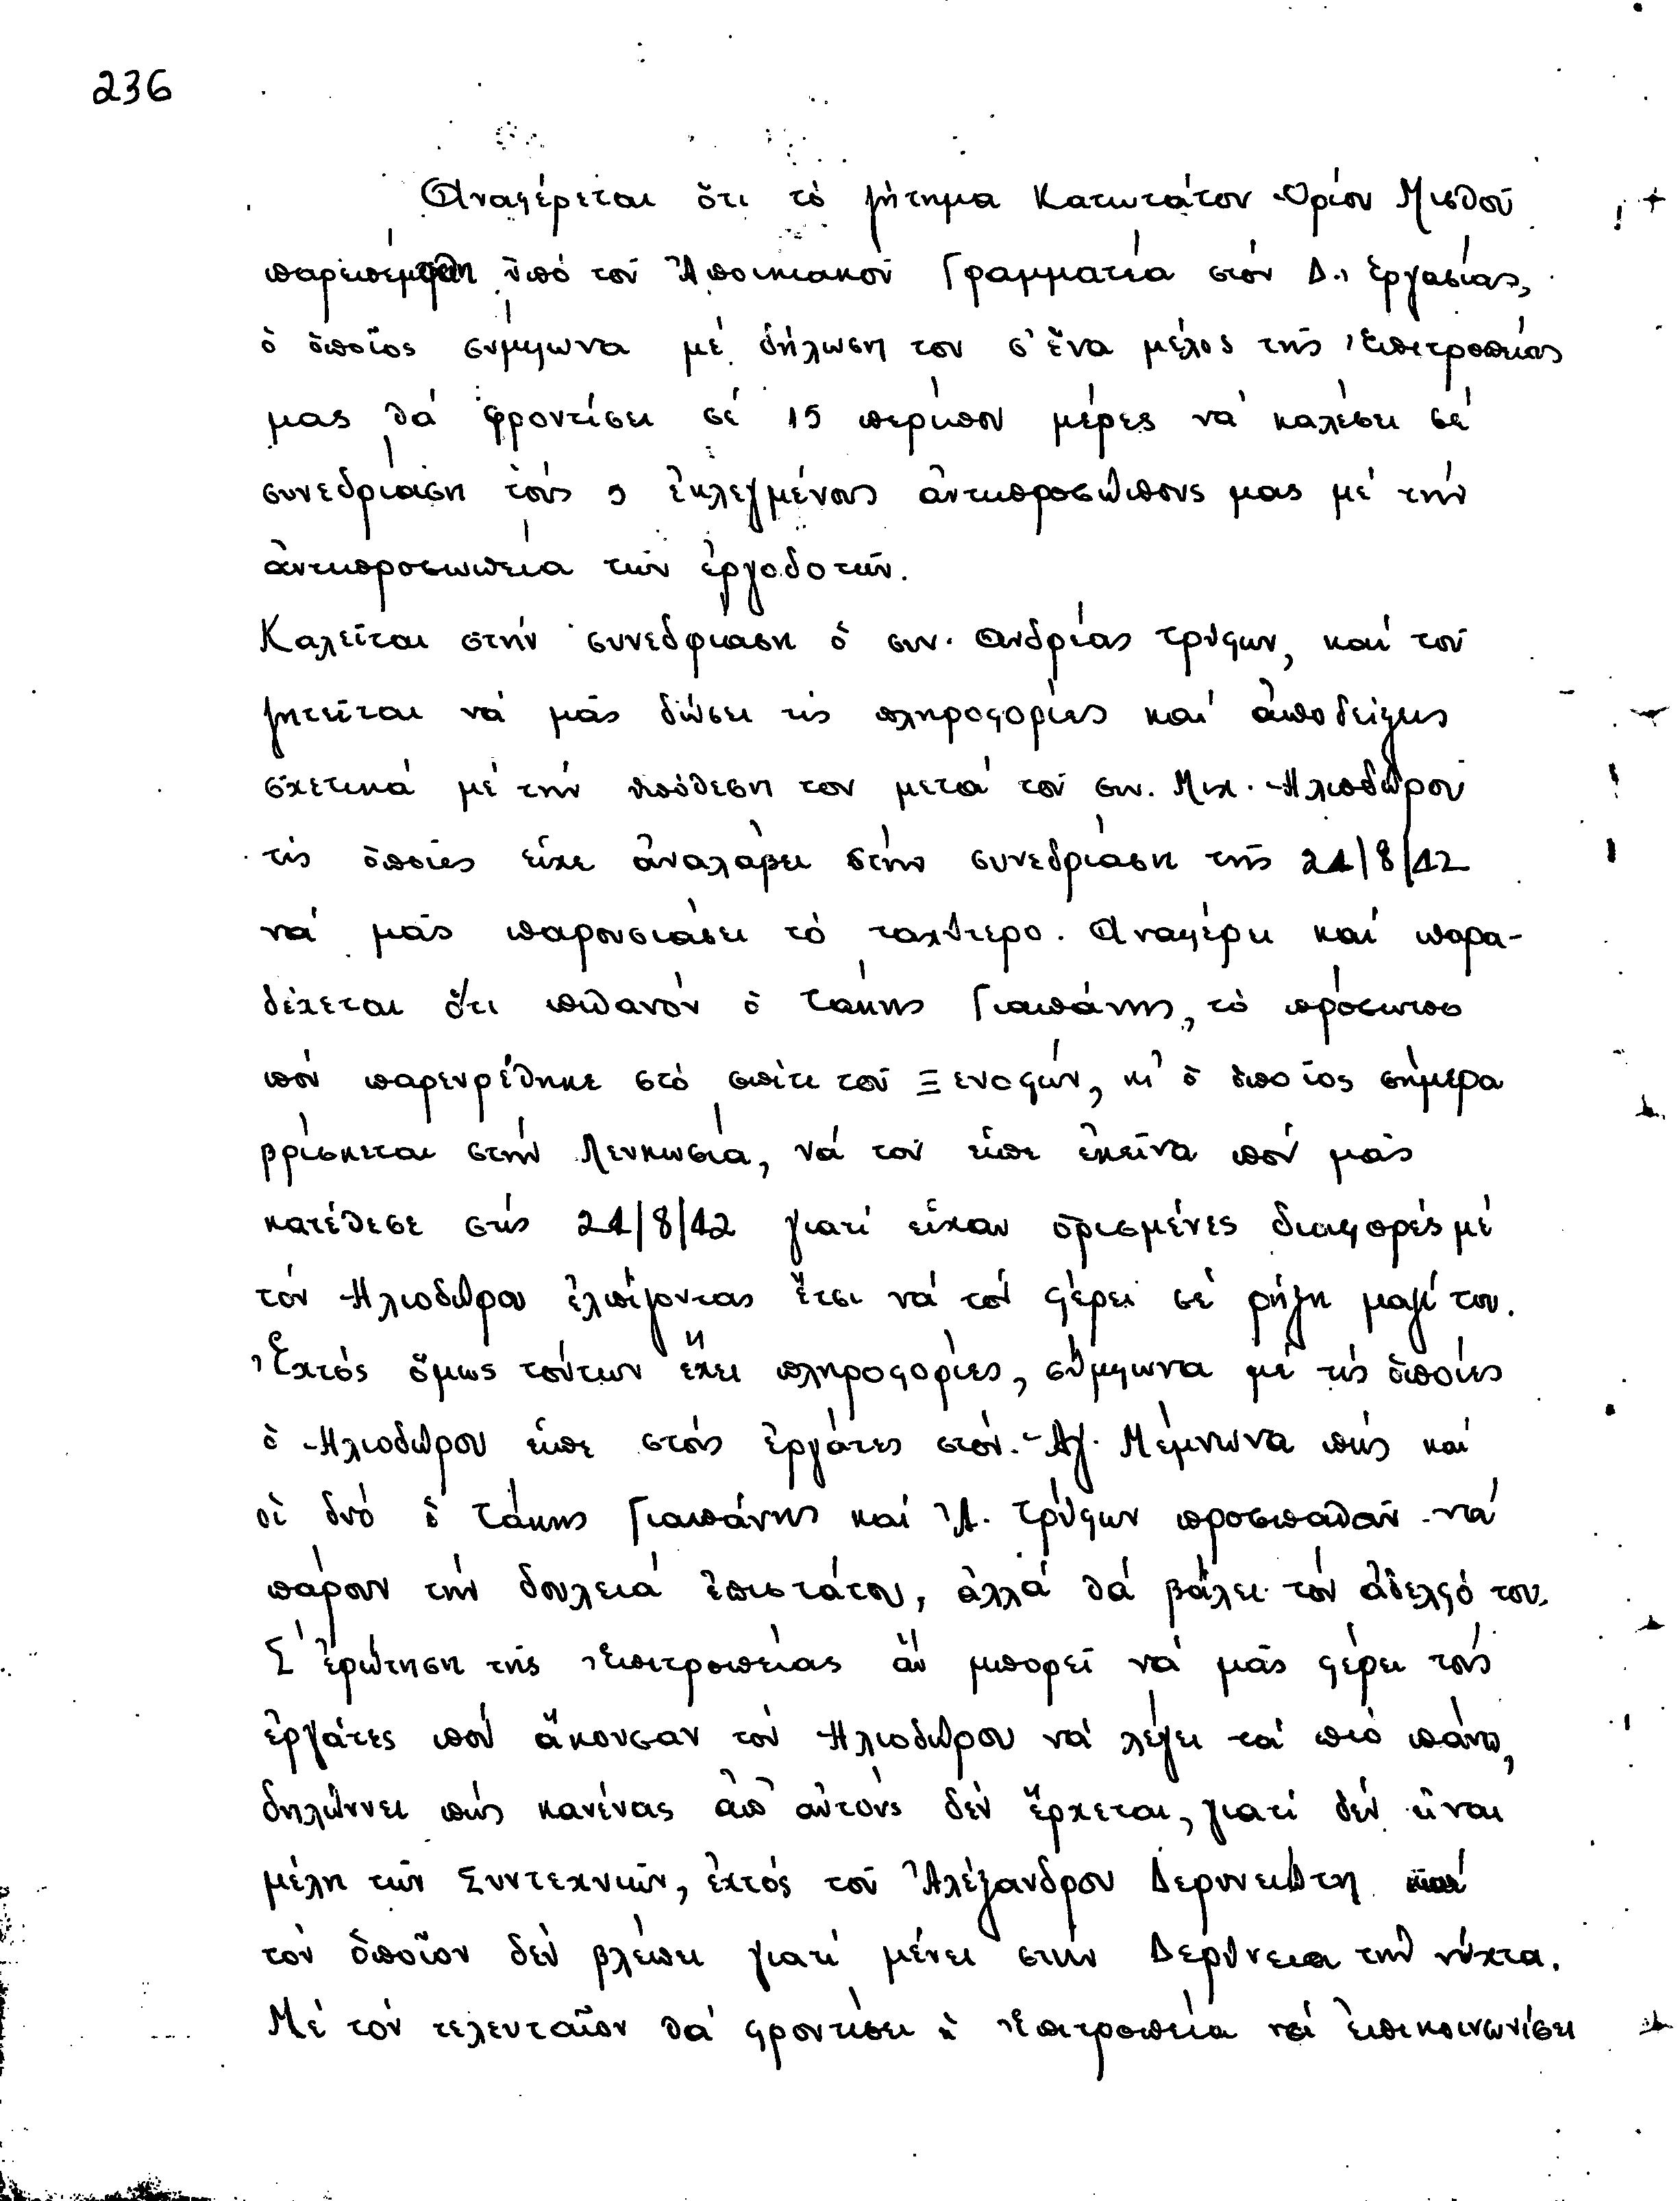 236
Ἀναφέρεται ὅτι τό ζήτημα Κατωτάτου Ὁρίου Μισθοῦ
παρεπέμφθη ὑπό τοῦ Ἀποικιακοῦ Γραμματέα στόν Δ. Ἐργασίας,
ὁ ὁποῖος σύμφωνα μέ δήλωση του σ' ἕνα μέλος τῆς Ἐπιτροπείας
μας θά φροντίσει σέ 15 περίπου μέρες νά καλέσει σέ
συνεδρίαση τούς 5 ἐκλεγμένους ἀντιπροσώπους μας μέ τήν
ἀντιπροσωπεία τῶν ἐργοδοτῶν.
Καλεῖται στήν συνεδρίαση ὁ συν. Ἀνδρέας Τρύφων, καί τοῦ
ζητεῖται νά μᾶς δώσει τίς πληροφορίες καί ἀποδείξεις
σχετικά μέ τήν ὑπόθεση του μετά τοῦ συν. Μιχ. Ἡλιοδώρου
τίς ὁποίες εἶχε ἀναλάβει στήν συνεδρίαση τῆς 21/8/42
νά μᾶς παρουσιάσει τό ταχύτερο. Ἀναφέρει καί παρα-
δέχεται ὅτι πιθανόν ὁ Τάκης Γιαπάνης, τό πρόσωπο
πού παρευρέθηκε στό σπίτι τοῦ Ξενοφῶν, κι' ὁ ὁποῖος σήμερα
βρίσκεται στήν Λευκωσία, νά τοῦ εἶπε ἐκεῖνα πού μᾶς
κατέθεσε στίς 21/8/42 γιατί εἶχαν ὁρισμένες διαφορές μέ
τόν Ἡλιοδώρου ἐλπίζοντας ἔτσι νά τόν φέρει σέ ρήξη μαζί του.
Ἐχτός ὅμως τούτων ἔχει πληροφορίες, σύμφωνα μέ τίς ὁποίες
ὁ Ἡλιοδώρου εἶπε στούς ἐργάτες στόν Ἁγ. Μέμνωνα πώς καί
οἱ δυό ὁ Τάκης Γιαπάνης καί Ἀ. Τρύφων προσπαθοῦν νά
πάρουν τήν δουλειά ἐπιστάτου, ἀλλά θά βάλει τόν ἀδελφό του.
Σ' ἐρώτηση τῆς Ἐπιτροπείας ἄν μπορεῖ νά μᾶς φέρει τούς
ἐργάτες πού ἄκουσαν τόν Ἡλιοδώρου νά λέγει τά πιό πάνω,
δηλώννει πώς κανένας ἀπ' αὐτούς δέν ἔρχεται, γιατί δέν εἶναι
μέλη τῶν Συντεχνιῶν, ἐχτός τοῦ Ἀλέξανδρου Δερυνειώτη
τόν ὁποῖον δέν βλέπει γιατί μένει στήν Δερύνεια τήν νύχτα.
Μέ τόν τελευταῖον θά φροντίσει ἡ Ἐπιτροπεία νά ἐπικοινωνίσει